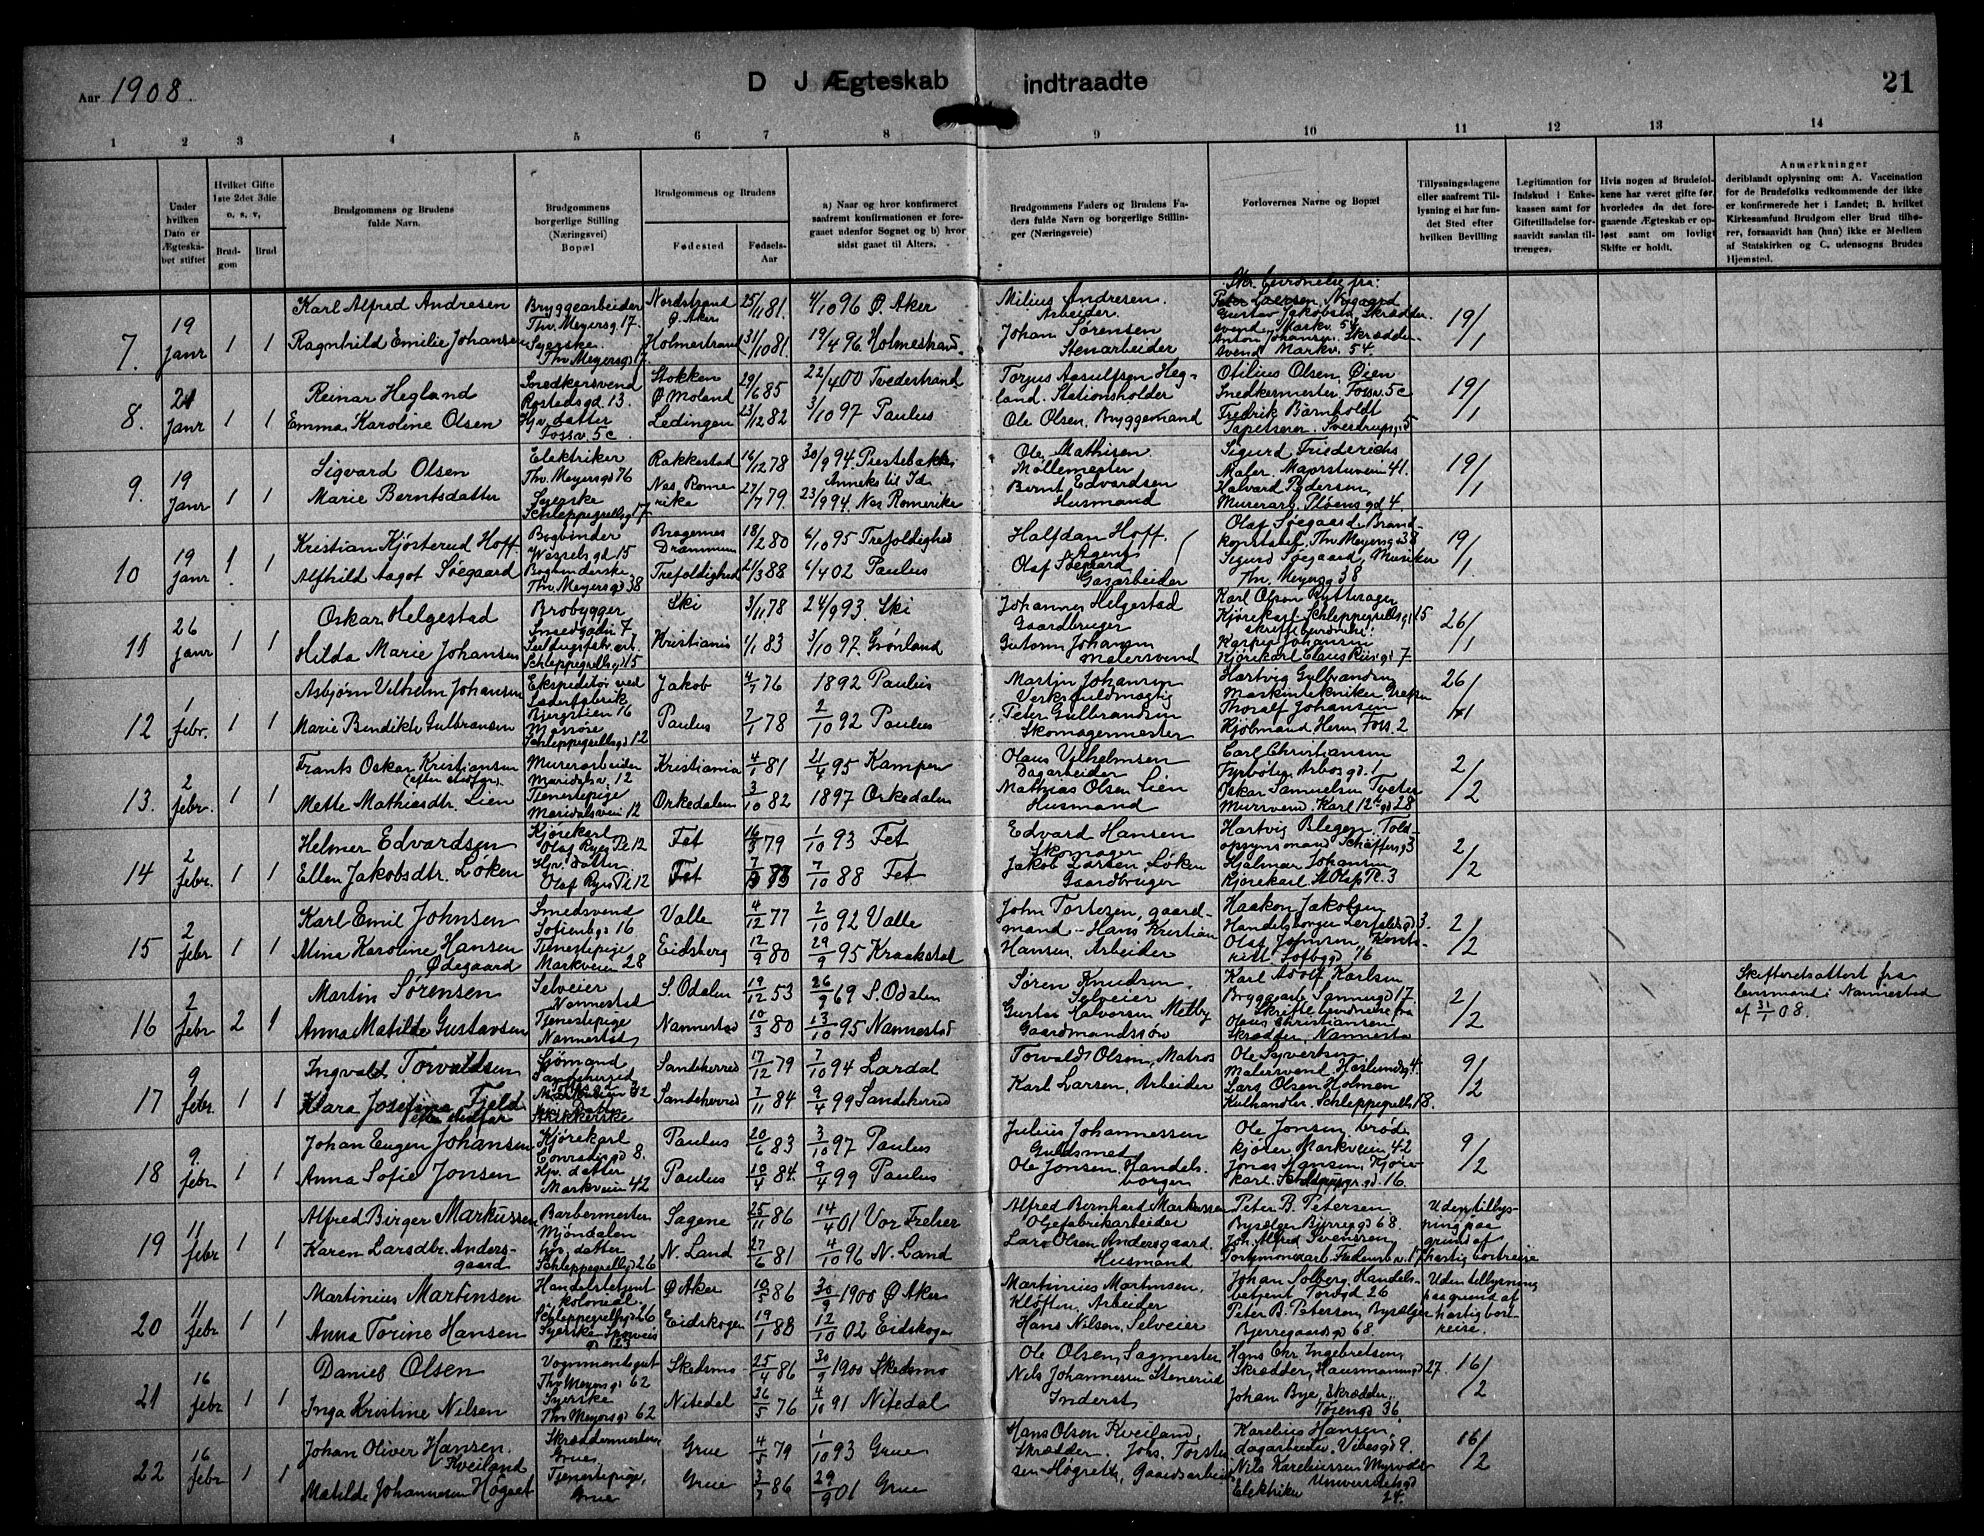 Aar 1908.
D J Ægteskab indtraadte
21
1 2 3 4 5 6 7 8 9 10 11 12 13 14
Under hvilken Dato er Ægteskabet stiftet
Hvilket Gifte 1ste 2det 3die o. s. v,
Brudgom
Brud
Brudgommens og Brudens fulde Navn.
Brudgommens borgerlige Stilling (Næringsvei) Bopæl
Brudgommens og Brudens
Fødested
Fødsels-Aar
a) Naar og hvor konfirmeret saafremt konfirmationen er foregaaet udenfor Sognet og b) hvor sidst gaaet til Alters.
Brudgommens Faders og Brudens Faders fulde Navn og borgerlige Stillinger (Næringsveie)
Forlovernes Navne og Bopæl
Tillysningsdagene eller saafremt Tillysning ei har fundet Sted efter hvilken Bevilling
Legitimation for Indskud i Enkekassen samt for Giftetilladelse forsaavidt saadan tiltrænges.
Hvis nogen af Brudefolkene har været gifte før, hvorledes da det foregaaende Ægteskab er opløst samt om lovligt Skifte er holdt.
Anmerkninger
deriblandt oplysning om: A. Vaccination for de Brudefolks vedkommende der ikke er konfirmerede her i Landet; B. hvilket Kirkesamfund Brudgom eller Brud tilhører, forsaavidt han (hun) ikke er Medlem af Statskirken og C. udensogns Brudes Hjemsted.
7. 19 Janr 1 1
Karl Alfred Andresen
Bryggearbeider Thv. Meyersg 17.
Nordstrand Ø. Aker
25/1 81.
4/10 96 Ø. Aker
Milius Andresen. Arbeider
Ragnhild Emilie Johansen
Syerske Thv Meyersg 17
Holmestrand
31/10 81.
19/4 96. Holmestrand.
Johan Sørensen Stenarbeider
Gustav Jakobsen, Skræddersvend, Markv. 54
Anton Johansen, Skræddersvend Markv. 54.
19/1
8. 21 Janr 1 1
Reinar Hegland
Snedkersvend Rostedsgd. 13.
Stokken Ø Moland
29/1 85
22/4 00 Tvedestrand
Torjus Aasulfsen Hegland. Stationsholder
Emma Karoline Olsen
Hjv. datter Fossv. 5c
Lødingen
23/12 82
3/10 97 Paulus
Ole Olsen, Bryggemand
Otilius Olsen, Øien Snedkermester, Fossv. 5c
Fredrik Barnholdt Tapetserer. Sverdrupsg 5
19/1
9. 19 Janr 1 1
Sigvard Olsen
Elektriker Thv. Meyersgd 76
Rakkestad
16/12 78
30/9 94. Prestebakke Anneks til Id
Ole Mathisen Møllemester
Marie Berntsdatter
Syerske Schleppegrellsg 17
Nes Romerike
27/7 79.
23/9 94. Nes Romerike
Bernt Edvardsen Husmand
Sigurd Friederichs Maler, Majorstuvein 41.
Halvard Pedersen, Murerarb. Pløensgd 4.
19/1
10 19 Janr 1 1
Kristian Kjøsterud Hoff
Bogbinder Wesselsgd 15
Bragernes Drammen
18/2 80
6/10 95 Trefoldighed
Halfdan Hoff. Agent
Alfhild Aagot Søegaard
Bogbinderske Thv. Meyersgd 38
Trefoldighed
2/3 88
6/4 02 Paulus
Olaf Søegaard Gasarbeider
Olaf Søegaard, Brandkonstabel, Thv. Meyersg 38
Sigurd Søegaard, Musiker Thv. Meyersg 38
19/1
11 26 Janr 1 1
Oskar Helgestad
Brobygger Smedgaden 7
Ski
3/11 78
24/9 93. Ski
Johannes Helgestad Gaardbruger
Hilda Marie Johansen
Schleppegrellsgd 15
Kristiania
1/1 83
3/10 97. Grønland
Gustav Johansen Malersvend
Karl Olsen Rytterager Kjørekarl. Schleppegrellsg 15
Kasper Johansen Kjørekarl Claus Riisgd 7
26/1
12 1 febr. 1 1
Asbjørn Vilhelm Johansen
Ekspeditør ved Læderfabrik Bjergstien 16
Jakob
4/7 76
1892 Paulus
Martin Johansen Verksfuldmægtig
Marie Bendikte Gulbransen
Masøse Schleppegrellsgd 12
Paulus
7/1 78
2/10 92 Paulus
Peter Gulbrandsen Skomagermester
Hartvig Gulbrandsen Maskintekniker Grefsen
Thoralf Johansen Kjøbmand Herm. Foss. 2
26/1
13. 2 febr. 1 1
Frants Oskar Kristiansen (efter stedfar)
Murerarbeider Maridalsv. 12
Kristiania
4/1 81
21/4 95 Kampen
Olaus Vilhelmsen Dagarbeider
Mette Mathiasdtr. Lien
Tjenestepige Maridalsvein 12
Orkedalen
3/10 82
1897 Orkedalen
Mathias Olsen Lien Husmand
Carl Christiansen Fyrbøter, Arbosgd. 1
Oskar Samuelsen Tveter Murersvend. Karl 12tesgd 28
2/2
14 2 febr. 1 1
Helmer Edvardsen
Kjørekarl Olaf Ryes Pl 12
Fet
16/3 79
1/10 93 Fet
Edvard Hansen Skomager
Ellen Jakobsdtr. Løken
Hjv. datter Olaf Ryes Pl 12
Fet
7/9 73
7/10 88 Fet
Jakob Larsen Løken Gaardbruger
Hartvig Blegen, Toldopsynsmand Schæffersg 3
Hjalmar Johansen Kjørekarl. St. Olafs Pl. 3
2/2
15 2 febr 1 1
Karl Emil Johnsen
Smedsvend Sofienbgd 16
Valle
4/12 77
2/10 92 Valle
John Tortesen, gaardmand
Mina Karoline Hansen Ødegaard
Tjenestepige Markveien 28
Eidsberg
12/9 80
29/9 95 Kraakstad
Hans Kristian Hansen, Arbeider
Haakon Jakobsen Handelsborger
Olaf Johnsen, Kontorist. Sofbgd 16
2/2
16 2 febr 2 1
Martin Sørensen
Selveier Nannestad
S. Odalen
19/12 53
26/9 69 S. Odalen
Søren Knudsen, Selveier
Anna Matilde Gustavsen
Tjenestepige Nannestad
Nannestad
10/3 80
13/10 95 Nannestad
Gustav Halvorsen Melby Gaardmandssøn
Karl Adolf Karlsen Bryggearb. Sannergd 17.
Skriftl. beyidnelse fra Olaus Christiansen Skrædder, Nannestad
2/2
Skifteretsattest fra lensmand i Nannestad af 31/1 08.
17 9 febr. 1 1
Ingvald Torvaldsen
Sjømand Sandeherred
Sandeherred
17/12 79
7/10 94 Lardal
Torvald Olsen, Matros
Klara Josefine Fjeld efter stedfar
Sandeherred
7/11 84
9/4 99 Sandeherred
Karl Larsen, Arbeider
Ole Syvertsen Malersvend, Haslumsg 4.
Lars Olsen Holmen Kulhandler. Schleppegrells 18.
9/2
18 9. febr 1 1
Johan Eugen Johansen
Kjørekarl Conradigd 8.
Paulus
20/6 83
3/10 97 Paulus
Julius Johannessen Guldsmed
Anna Sofie Jonsen
Hjv. datter Markveien 42
Paulus
10/4 84.
9/4 99 Paulus
Ole Jonsen, Handelsborger
Ole Jonsen, brødkjører Markveien 42
Jonas Hansen, Kjørekarl. 16.
9/2
19 11 febr 1 1
Alfred Birger Markussen
Barbermester Mjøndalen
Sagene
25/11 86
14/4 01 Vor Frelser
Alfred Bernhard Markussen Oljefabrikarbeider
Karen Larsdtr. Andersgaard
hjv. datter Schleppegrellsgd 26
N. Land
27/6 81
4/10 96 N. Land
Lars Olsen Andersgaard. Husmand
Peter B. Petersen Bysælger Bjerregd 68.
Joh. Alfred Svensen, Portemonæarb.
Uden tillysning paa grund af hastig bortreise
20 11 febr 1 1
Martinius Martinsen
Handelsbetjent kolonial. Schleppegrellsgd 26
Ø Aker
10/5 86
30/9 1900 Ø Aker
Martinius Martinsen, Kløften, Arbeider
Anna Torine Hansen
Syerske Sporveisgd 23
Eidskogen
19/1 88
12/10 02 Eidskogen
Hans Nilsen, Selveier
Johan Solberg, Handelsbetjent Torvgd 26
Peter B. Petersen, Bysælger Bjerregaardsgd 68.
Uden tillysning paa grund af hastig bortreise.
21 16 febr 1 1
Daniel Olsen
Vognmandsgut Thv Meyersgd 62
Skedsmo
25/4 86
30/9 1900 Skedsmo
Ole Olsen, Sagmester
Inga Kristine Nilsen
Syerske Thv Meyersgd 62
Nitedal
26/5 76
4/10 91 Nitedal
Nils Johannessen Stenerud Inderst
Hans Chr. Ingebretsen, Skrædder, Hausmannsgd 27.
Johan Bye, Skrædder, Torengd 36.
16/2
22 16 febr 1 1
Johan Oliver Hansen. Kveiland
Skræddermester, Grue,
Grue
4/5 79
1/10 93 Grue
Hans Olsen Kveiland, Skrædder.
Matilde Johannesen Høgset
Tjenestepige, Grue
Grue
3/7 86
29/9 01 Grue
Johs. Torstensen Høgsett, Gaardsarbeider
Karelius Hansen, dagarbeider. Vibesgd 9.
Nils Kareliussen Myrvold Elektriker Universitetsgd 24.
16/2